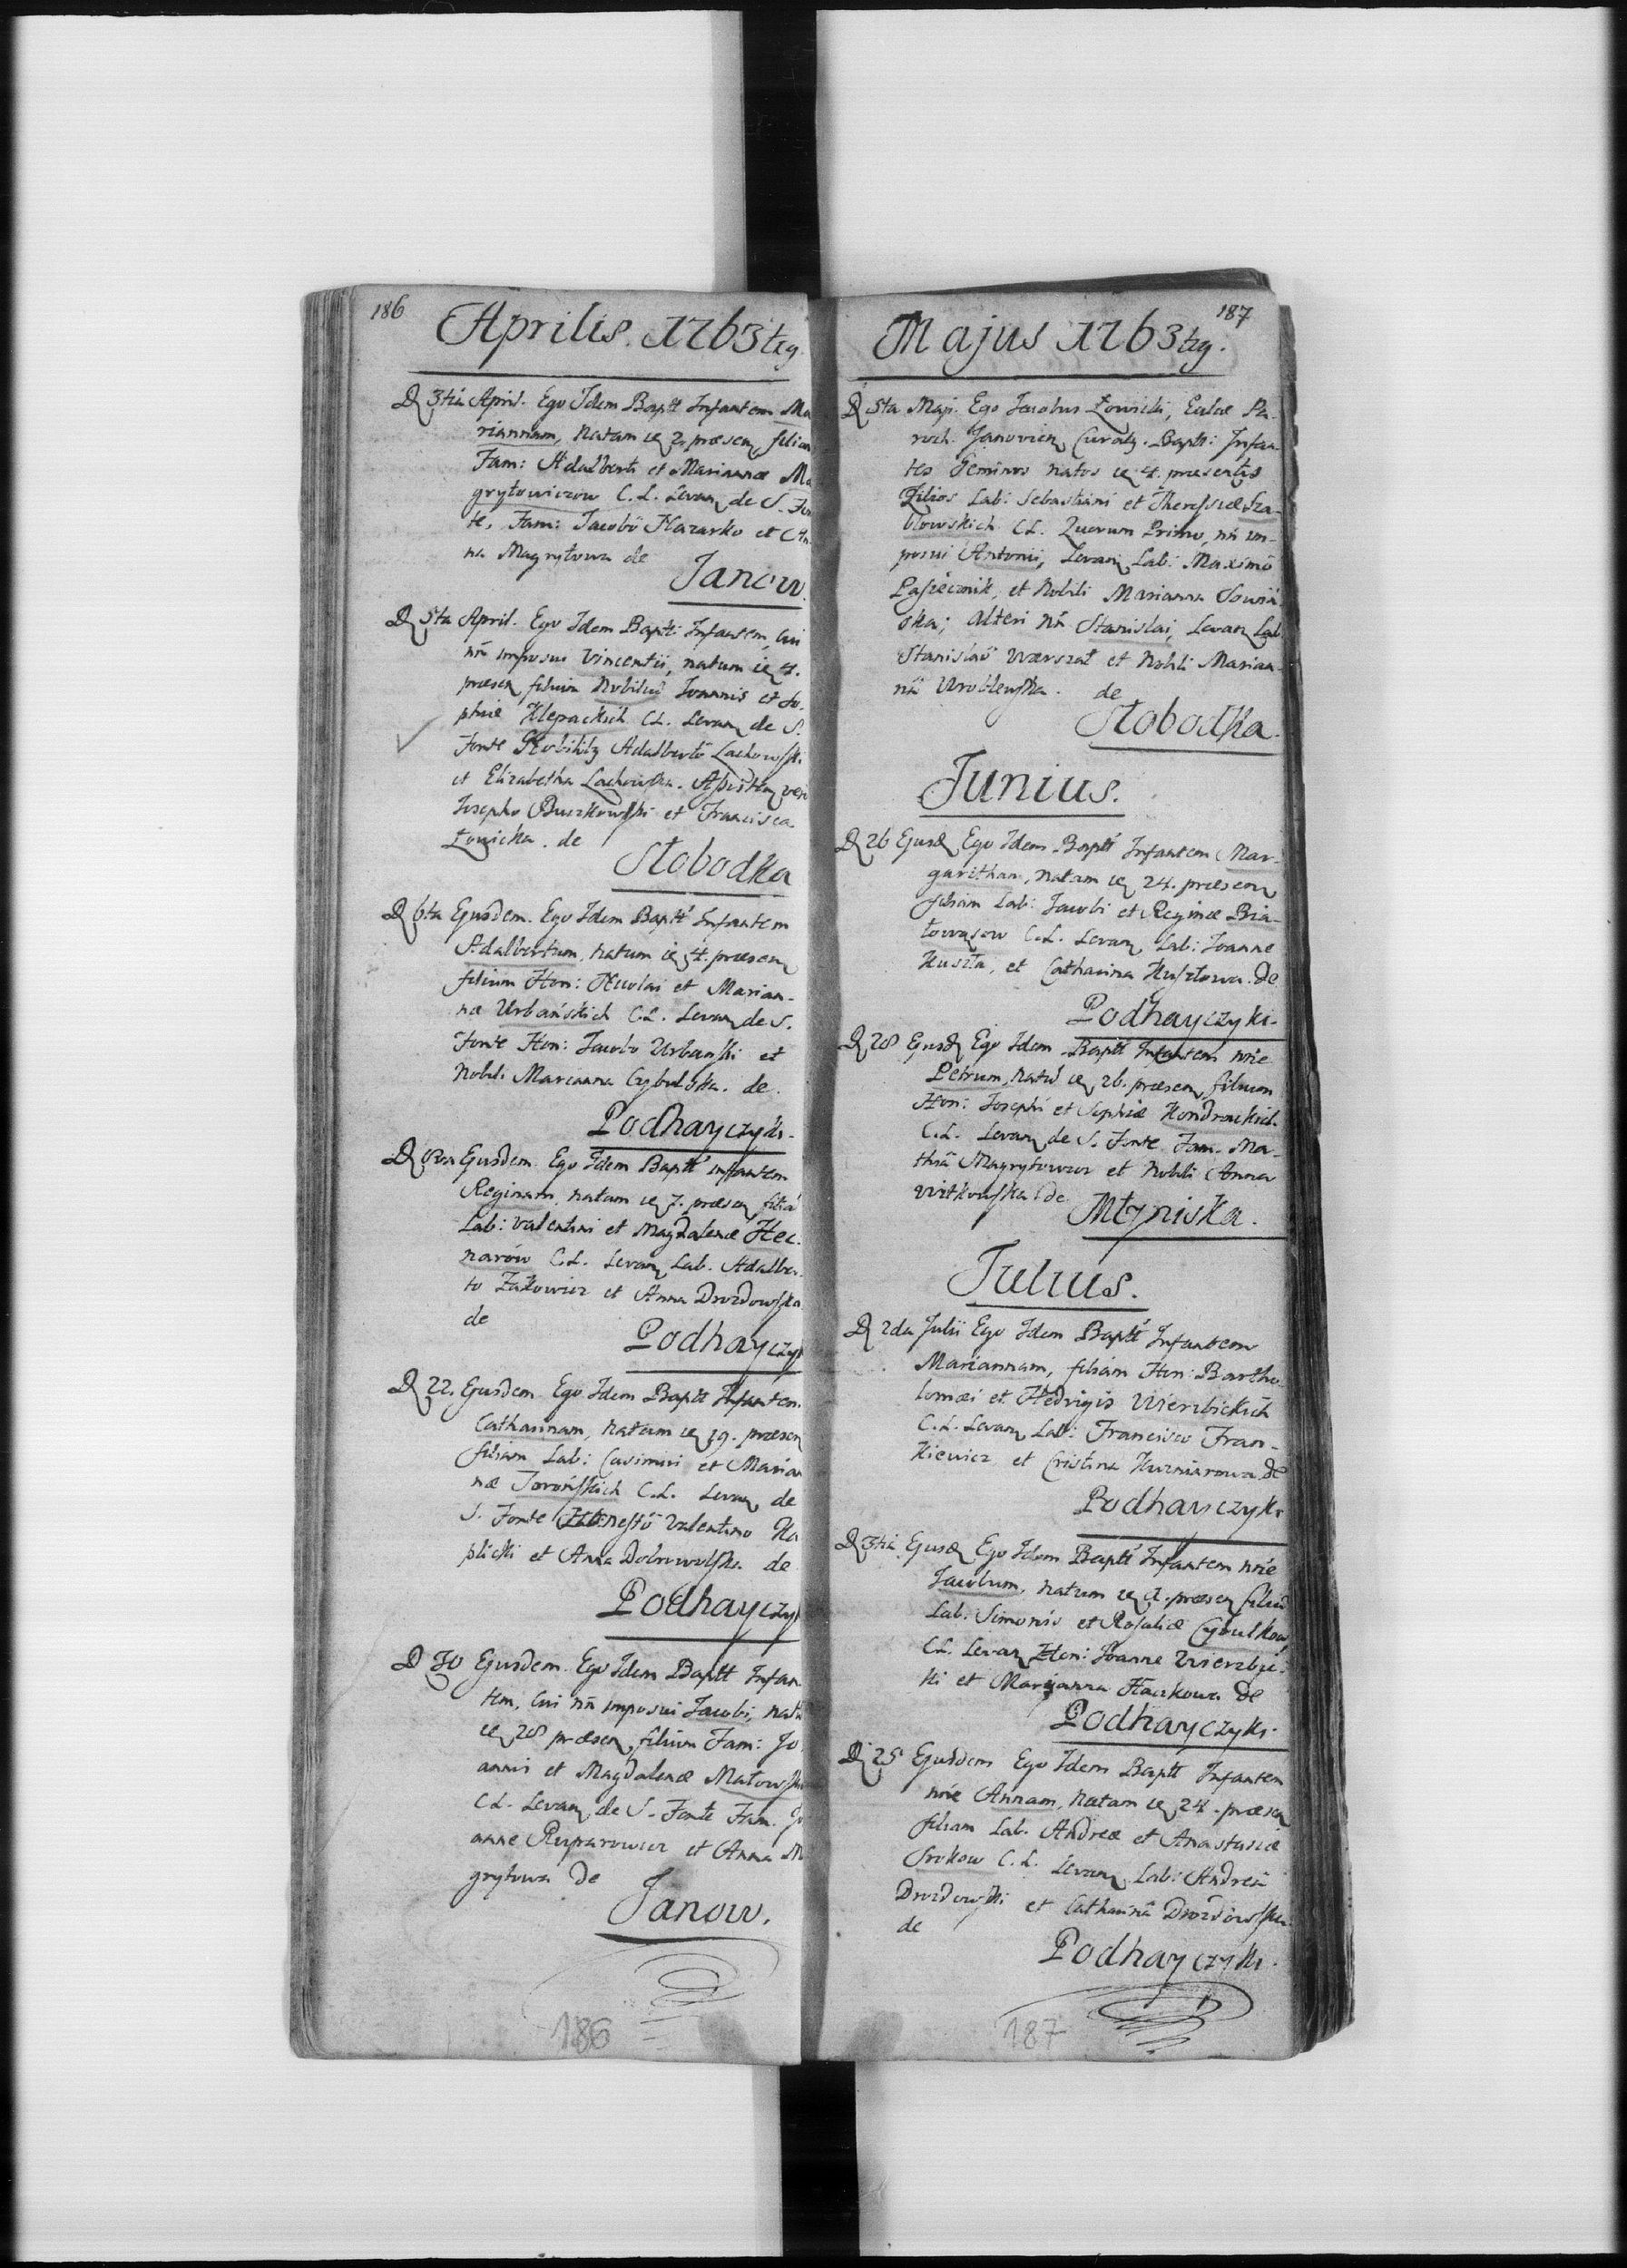 186
Aprilis. 1763tig.
D 3tia April. Ego Idem Baptt Infantem Ma
riannam, natam ie 2. praesen filiam
Fam: Adalberti et Mariannae Ma
grytowiczow C. L. Levan de S. Fon
te, Fam: Jacobo Nazarko et An
na Magrytowa de
Janow.
D 5ta April. Ego Idem Baptt: Infantem, cui
nn imposui Vincentii, natum ie 4.
praesen filium Nobiliu Joannis et So
phiae Klepackich CL. Levan de S.
Fonte Nobili Adalberto Lachowski
et Elizabetha Lachowska. Assisten
Josepho Buczkowski et Francisca
Łowicka. de
Słobodka
D 6ta Ejusdem. Ego Idem Baptt Infantem
Adalbertum, natum ie 4. praesen
filium Hon: Nicolai et Marian-
nae Urbańskich C.L. Levan de S.
Fonte Hon: Jacobo Urbanski et
Nobili Marianna Cybulska. de
Podhayczyki.
D 8va Ejusdem. Ego Idem Baptt infantem
Reginam, natam ie 7. praesen filia
Lab: Valentini et Magdalenae Hec.
narów C.L. Levan Lab. Adalber-
to Zakowicz et Anna Drozdowska
de
Podhayczy
D 22. Ejusdem. Ego Idem Baptt Infantem
Catharinam, natam ie 19. praesen
filiam Lab: Casimiri et Marian
nae Jarońskich C.L. Levan de
S. Fonte Valentino Ka
plicki et Anna Dobrowolska de
Podhayczy
D 30 Ejusdem. Ego Idem Baptt Infan
tem, cui nn imposui Jacobi, natu
ie 28 praesen, filium Fam: Jo
annis et Magdalenae Małowski
CL. Levan de S. Fonte Fam. Jo
anne Ruparowicz et Anna M
grytowa de
Janow.
186
187
Majus 1763tig.
D 5ta Maji. Ego Jacobus Łowicki, Eclae Pa-
roch. Janovien Curatg. Baptt: Infan-
tes Geminos natos ie 4. praesentis
Filios Lab: Sebastiani et Theressiae Sza-
błowskich CL. Quorum Primo, nn im-
posui Antonii, Levan Lab: Maximo
Pasiecznik, et Nobili Marianna Sowiń
ska; alteri nn Stanislai, Levan Lab
Stanislao Warszat et Nobili Marian-
na Wroblewska. de
Słobodka.
Junius.
D 26 Ejusd Ego Idem Baptt Infantem Mar-
garitham, natam ie 24. praesen
filiam Lab: Jacobi et Reginae Bia-
łowąsow C.L. Levan Lab: Joanne
Huszła, et Catharina Huszłowa. de
Podhayczyki.
D 28 Ejusd Ego Idem Baptt Infantem noie
Petrum, natu ie 26. praesen, filium
Hon: Josephi et Sophiae Kondrackich
C.L. Levan de S. Fonte Fam. Ma-
thia Magrytowicz et Nobili Anna
Witkowska de
Młyniska.
Julius.
D 2da Julii Ego Idem Baptt Infantem
Mariannam, filiam Hon: Bartho-
lomaei et Hedvigis Wierzbickich
C.L. Levan Lab: Francisco Fran-
kiewicz et Cristina Kuzniarowa de
Podhayczyki
D 3tia Ejusd Ego Idem Baptt Infantem noie
Jacobum, natum ie 1. praesen filiu
Lab. Simonis et Rosaliae Cybulkow
CL. Levan Hon: Joanne Wierzbic-
ki et Marjanna Haczkowa de
Podhayczyki.
D 25 Ejusdem Ego Idem Baptt Infantem
noie Annam, natam ie 24. praesen
filiam Lab. Andreae et Anastasiae
Srokow C.L. Levan Lab: Andrea
Drozdowski et Catharina Drozdowska
de
Podhayczyki.
187